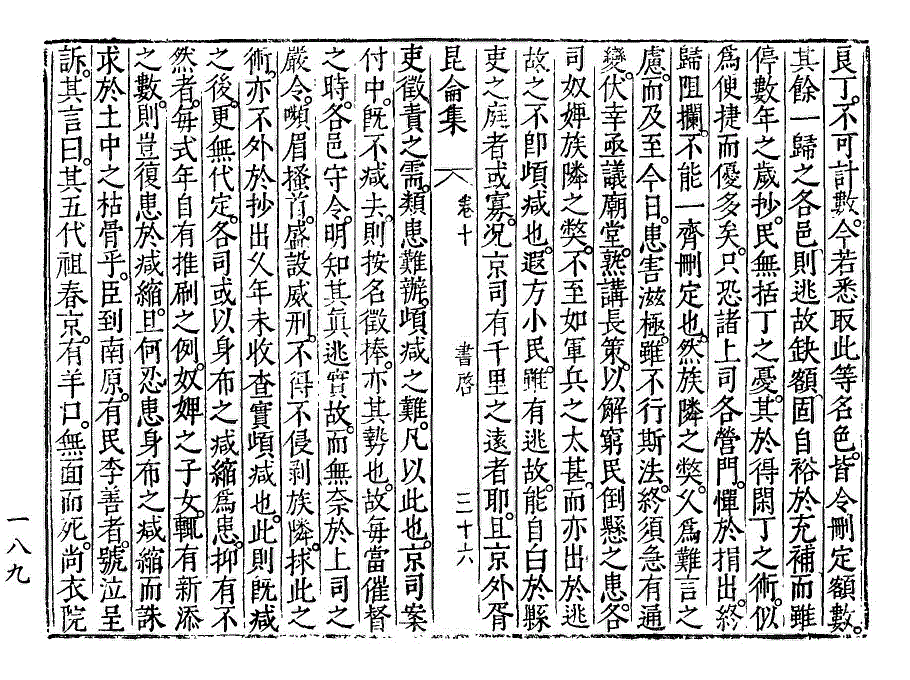 良丁。不可計數。今若悉取此等名色。皆令刪定額數。
其餘一歸之各邑。則逃故缺額。固自裕於充補。而雖
停數年之歲抄。民無括丁之憂。其於得閑丁之術。似
爲便捷而優多矣。只恐諸上司各營門。憚於捐出。終
歸阻攔。不能一齊刪定也。然族隣之獘。久爲難言之
慮。而及至今日。患害滋極。雖不行斯法。終須急有通
變。伏幸亟議廟堂。熟講長策。以解窮民倒懸之患。各
司奴婢族隣之獘。不至如軍兵之太甚。而亦出於逃
故之不卽頉减也。遐方小民。雖有逃故。能自白於縣
吏之庭者或寡。况京司有千里之遠者耶。且京外胥
昆侖集 卷十 書啓 三十六
吏徵責之需。類患難辦。頉减之難。凡以此也。京司案
付中。旣不减去。則按名徵捧。亦其勢也。故每當催督
之時。各邑守令。明知其眞逃實故。而無奈於上司之
嚴令。嚬眉搔首。盛設威刑。不得不侵剥族隣。捄此之
術。亦不外於抄出久年未收。查實頉减也。此則旣减
之後。更無代定。各司或以身布之减縮爲患。抑有不
然者。每式年自有推刷之例。奴婢之子女。輒有新添
之數。則豈復患於减縮。且何忍患身布之减縮而誅
求於土中之枯骨乎。臣到南原。有民李善者。號泣呈
訴。其言曰。其五代祖春京。有羊口。無面而死。尚衣院
一八九